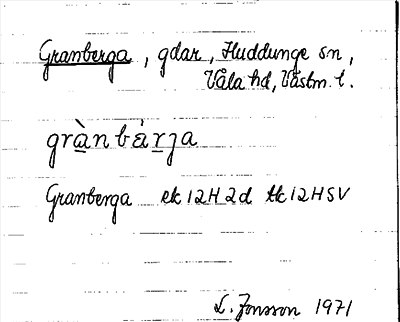 Granberga, gdar, Huddunge sn,
Våla hd, Västm. l.
grànbárja
Granberga ek 12H2d tk 12HSV
L. Jonsson 1971